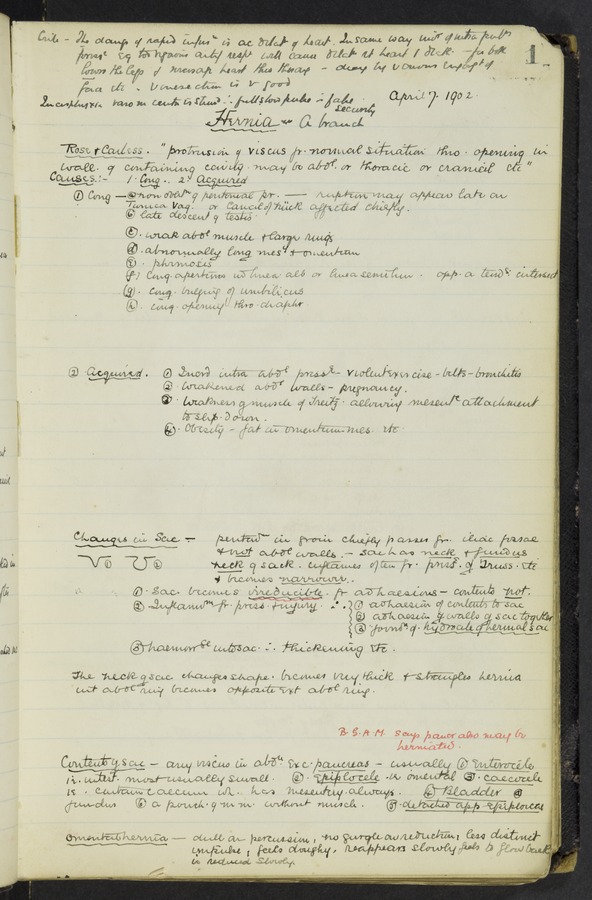 Crile - The dang of rapid infusn is ac dilatn of heart. In same way
1
April 7. 1902.
Hernia a branch
Rose & Carless. "protrusion of viscus fr. normal situation thro. opening in
wall of containing cavity. may be abdl or thoracic or cranial etc"
Causes:- 1. Cong. 2. Acquired
① Cong - ⓐ non oblitn of peritoneal pr. — rupture may appear late on
Tunica vag. or Canal of Nück affected chiefly.
ⓑ late descent of testis
ⓒ. weak abdl muscle & large rings
ⓓ. abnormally long mesy & omentum
ⓔ. phimosis
ⓕ) Cong. apertures in linea alb or linea semilun. opp. a tends intersect
ⓖ. cong. bulging of umbilicus
ⓗ. cong. opening thro diaphr.
② Acquired. ① Incrd intra abdl pressre - violent exercise - belts - bronchitis
②. Weakened abdl walls - pregnancy.
③. Weakness of muscle of Treitz. allowing mesentc attachment
to slip down.
④. Obesity - fat in omentum mes. etc.
Changes in Sac - peritonm in groin chiefly passes fr. iliac fossae
& not abdl walls. - Sac has neck & fundus
neck of sack. inflames often fr. press. of Truss. etc
& becomes narrower.
①. Sac becomes irreducible fr adhaesions - contents not.
② Inflammn fr press & injury ∴ ① adhaesion of contents to sac
② adhaesion of walls of sac together
③ formn of hydrocele of hernial sac
③ haemorrge into sac ∴ thickening etc.
The neck of sac changes shape. becomes very thick & strangles hernia
int abdl ring becomes opposite ext abdl ring.
says pancr also may be
herniated.
Contents of sac - any viscus in abdn exc. pancreas - usually ① Enterocele
is. intest. most usually small. ②. Epiplocele. is omental ③. caecocele
is. contains caecum wh. has mesentery always. ④ Bladder ⓐ
fundus ⓑ a pouch of m.m. without musch. ⑤. detached app. epiploicas
Omental hernia - dull on percussion, no gurgle on reduction, less distinct
impulse, feels doughy. reappears slowly feels to flow back
is reduced slowly